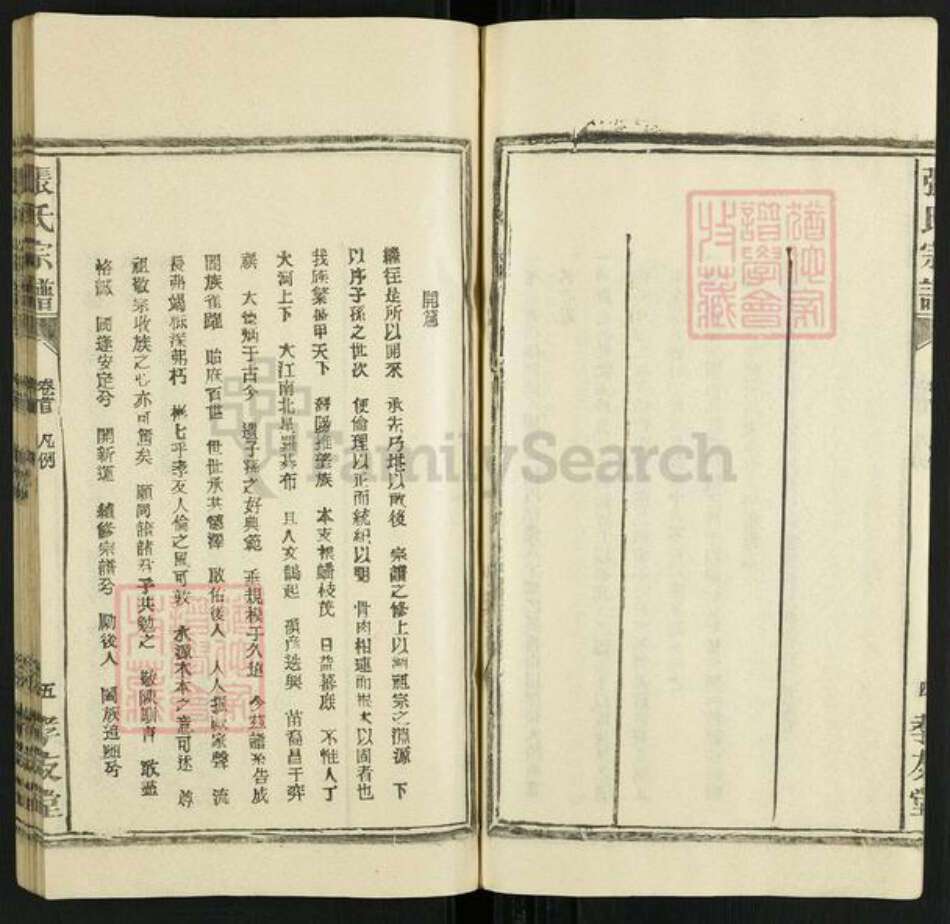 張氏宗譜
孝友堂
開篇
繼往是所以開來 承先乃堪以啟後 宗譜之修上以溯祖宗之淵源 下
以序子孫之世次 使倫理以正而統紀以明 骨肉相連而根本以固者也
我族繁衍甲天下 推望族 本支根蟠枝茂 日益蕃庶 不惟人丁
大河上下 大江南北星羅棋布 且人文鵲起 碩彥迭興 苗裔昌于弈
禩 大德炳于古今 遺子孫之好典範 垂規模于久遠 今茲譜系告成
闔族雀躍 貽庥百世 世世承其德澤 啟佑後人 人人振厥家聲 流
長 朽 孝友人倫之風可敦 水源木本之意可述 尊
祖敬宗收族之心亦可篤矣 願同諸君子共勉之 敬陳 敢並
格敬 安定兮 開新運 續修宗譜兮 勵後人 闔族追隨兮
張氏宗譜
卷首 凡例
五 孝友堂
猶他家譜學會收藏
FamilySearch